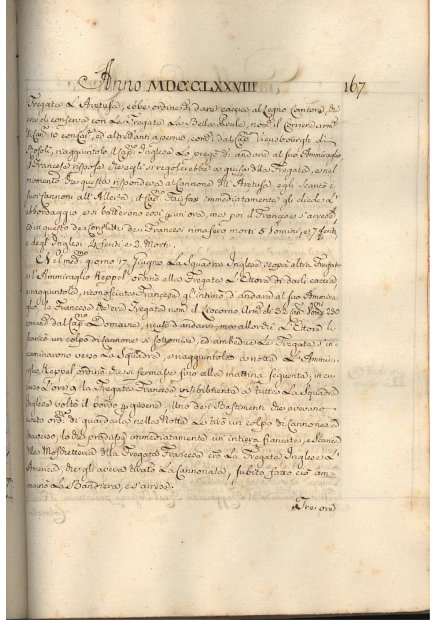 Anno MDCCLXXVIII 167
Fregata L'Aretusa, ebbe ordine di dare caccia al Legno Corritore, che
era di conserva con La Fregata La Bella Poule, nom. il Corriere arm.
di Can. 10 con Cap. ed altrettanti a perno, com. dal Cap.
Rosoli, raggiuntolo il Cap. Inglese Lo pregò di andare al suo Ammiraglio
il Francese rispose che egli si regolerebbe a guisa della Fregata, e nel
momento che questa rispondeva al Cannone dell'Aretusa, egli scaricò i
suoi cannoni all'Allerta, il Cap. Fairfax immediatamente gli diede L'
abbordaggio, e si batterono così un'ora, ma poi il Francese s'arrese,
ed in questo de' Francesi rimasero morti 5 Uomini, e 7 feriti
e degl'Inglesi 4 feriti, e 2 Morti.
Nel med.mo giorno 17 Giugno La Squadra Inglese scoprì altra Fregata
e l'Ammiraglio Keppel ordinò alla Fregata L'Ettore di darli caccia
e raggiuntolo, riconosciuta Francese gl'intimò d'andare al suo Ammira-
glio, la Francese che era Fregata nom. il Liocorno Arm. di 32 Can. 230
comand. dal Cap. ricusò d'andare, ma allorchè L'Ettore le
tirò un colpo di cannone si sottomise, ed ambedue Le Fregate s'in-
camminarono verso La Squadra, e raggiuntola a notte L'Ammira-
glio Keppel ordinò che si fermasse fino alla mattina seguente, in cui
a 9 ore la Fregata Francese visibilmente a tutta La Squadra
Inglese voltò il bordo Uno de' Bastimenti che avevano
avuto ord. di guardarla nella Notte Le tirò un colpo di Cannone
avviso, lo che produsse immediatamente un'intiera fiancata, e Scarica
della Moschetteria della Fregata Francese c'ro La Fregata Inglese L'
America, che gli aveva tirato La Cannonata, subito fatto ciò am-
mainò La Bandiera, e s'arrese.
Tre ore